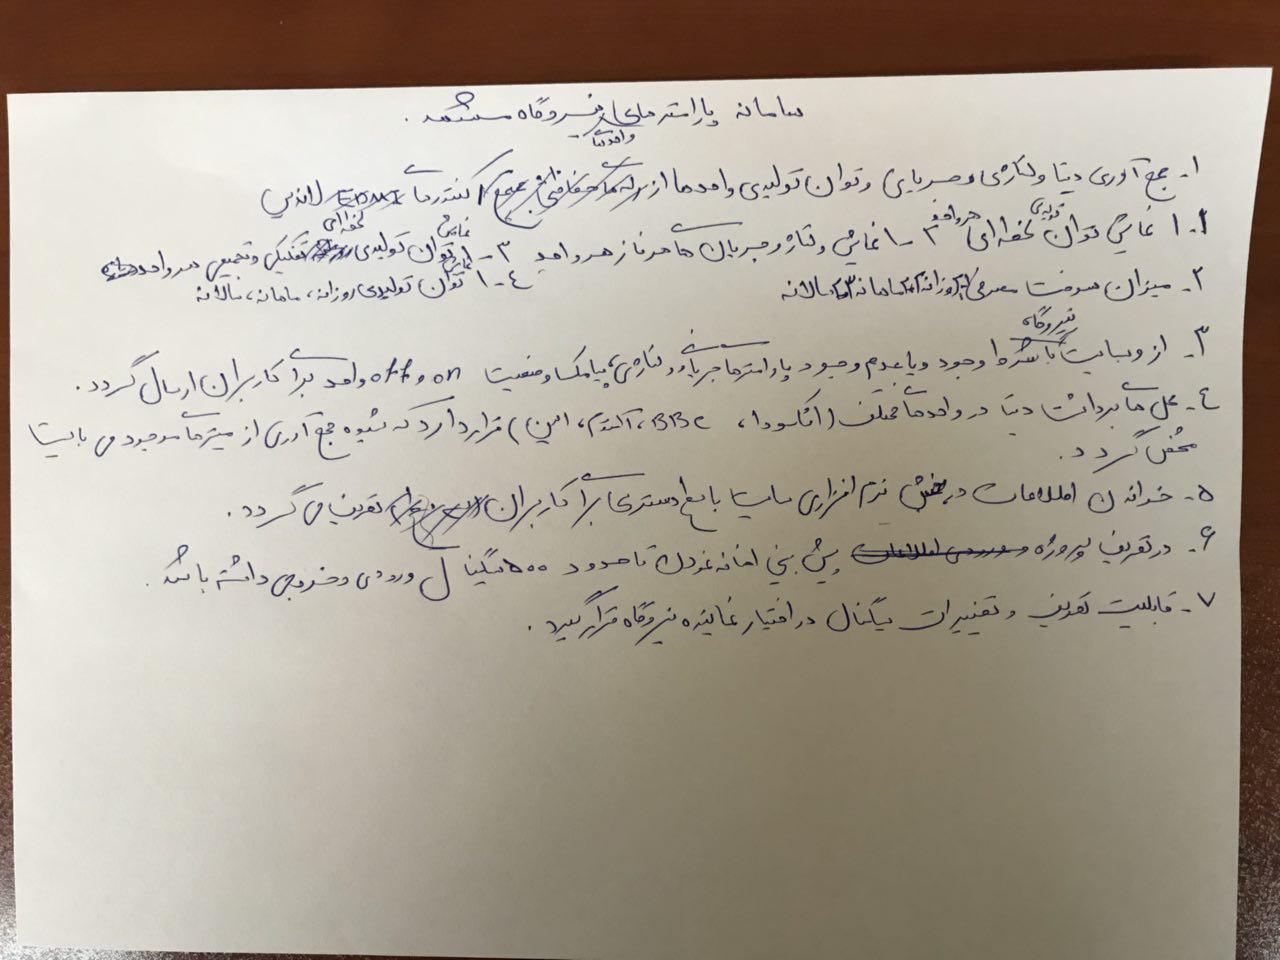 سامانه پارامترهای نیروگاه مشهد .
واحدهای
۱- جمع آوری دیتا ولتاژی و جریانی و توان تولیدی واحدها از کنتورهای
۱-۱ نمایش توان لحظه‌ای تولیدی هر واحد ۲-۱ نمایش ولتاژ و جریان های هر فاز هر واحد ۳-۱ نمایش توان تولیدی لحظه‌ای تفکیکی و تجمیعی هر واحد
۴-۱ نمایش توان تولیدی روزانه، ماهانه، سالانه
۲- میزان سوخت مصرفی روزانه ماهانه سالانه
۳- از وبسایت نیروگاه وجود و یا عدم وجود پارامترهای جریانی و ولتاژی، پیامک وضعیت on و off واحد برای کاربران ارسال گردد.
۴- محل های برداشت دیتا در واحدهای مختلف ( BBC، آلستوم، ) قرار دارد که نحوه جمع آوری از میترهای موجود می بایستی
مشخص گردد.
۵- خواندن اطلاعات در بخش نرم افزاری سایت با سطح دسترسی برای کاربران تعریف می گردد.
۶- در تعریف پروژه پیش بینی اضافه نمودن تا حدود ۵۰۰ سیگنال ورودی و خروجی داشته باشد.
۷- قابلیت تعریف و تغییرات سیگنال در اختیار نماینده نیروگاه قرار گیرد.